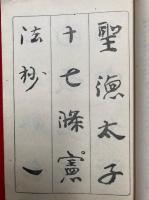 聖德太子
十七條憲
法抄一